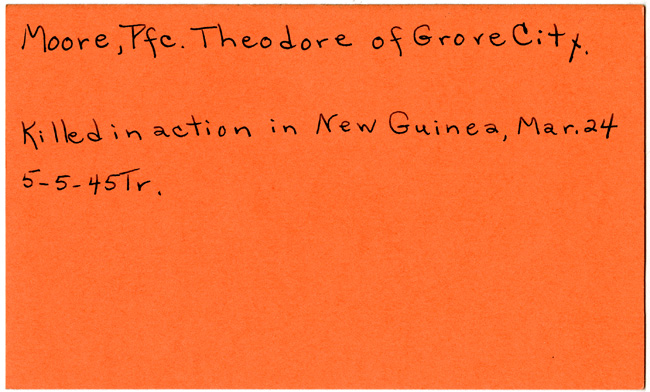 Moore, Pfc. Theodore of Grove City.
Killed in action in New Guinea, Mar. 24
5-5-45 Tr.